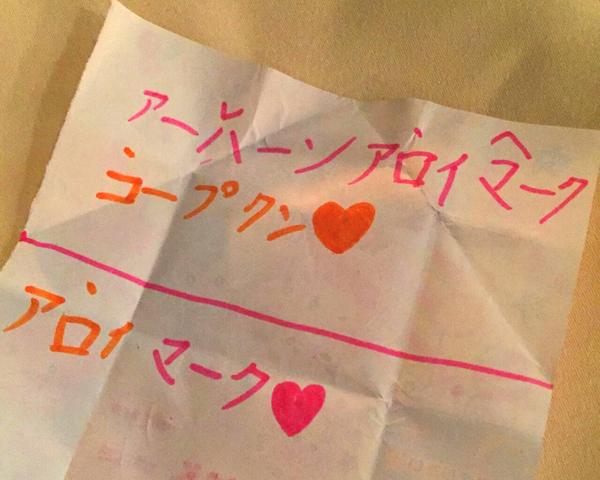 アーハーン アロイ マーク
コープクン♥
アロイ マーク♥